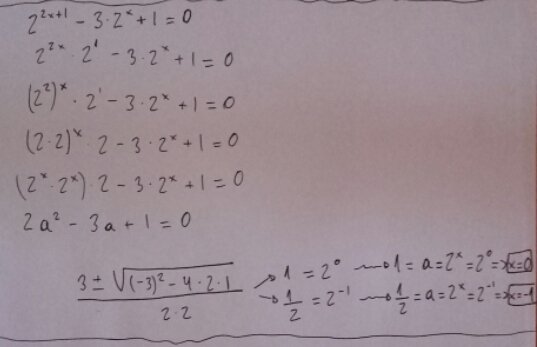 2²ˣ⁺¹ - 3·2ˣ + 1 = 0
2²ˣ · 2¹ - 3·2ˣ + 1 = 0
(2²)ˣ · 2¹ - 3·2ˣ + 1 = 0
(2·2)ˣ · 2 - 3·2ˣ + 1 = 0
(2ˣ·2ˣ)·2 - 3·2ˣ + 1 = 0
2a² - 3a + 1 = 0
3 ± √((-3)² - 4·2·1) / 2·2
→ 1 = 2⁰ → 1 = a = 2ˣ = 2⁰ ⇒ x=0
→ 1/2 = 2⁻¹ → 1/2 = a = 2ˣ = 2⁻¹ ⇒ x=-1